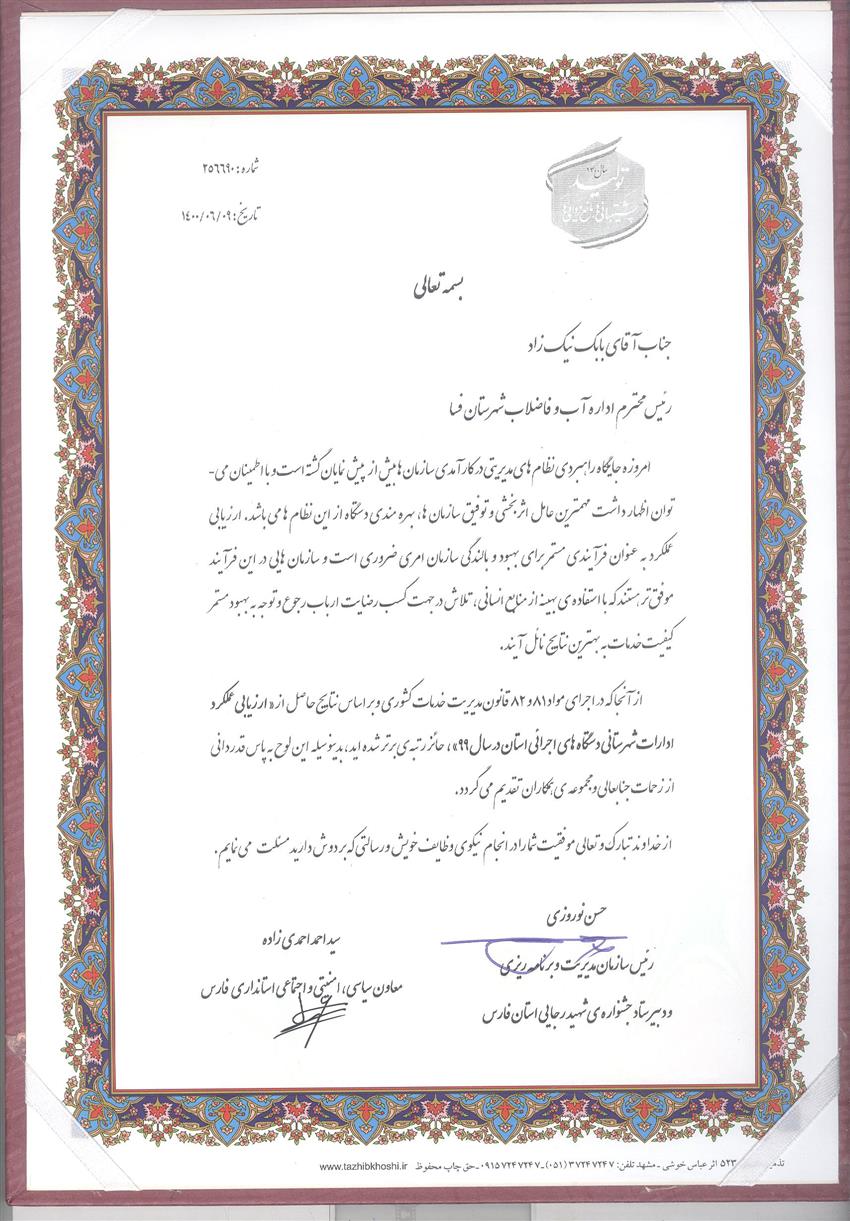 شماره: ۲۵۶۶۹۰
تاریخ: ۱۴۰۰/۰۶/۰۹
سال ۱۴۰۰
تولید
پشتیبانی‌ها مانع‌زدایی‌ها
بسمه تعالی
جناب آقای بابک نیک زاد
رئیس محترم اداره آب و فاضلاب شهرستان فسا
امروزه جایگاه راهبردی نظام های مدیریتی در کارآمدی سازمان ها بیش از پیش نمایان گشته است و با اطمینان می-
توان اظهار داشت مهمترین عامل اثربخشی و توفیق سازمان ها، بهره مندی دستگاه از این نظام ها می باشد. ارزیابی
عملکرد به عنوان فرآیندی مستمر برای بهبود و بالندگی سازمان امری ضروری است و سازمان هایی در این فرآیند
موفق تر هستند که با استفاده ی بهینه از منابع انسانی، تلاش در جهت کسب رضایت ارباب رجوع و توجه به بهبود مستمر
کیفیت خدمات به بهترین نتایج نائل آیند.
از آنجا که در اجرای مواد ۸۱ و ۸۲ قانون مدیریت خدمات کشوری و بر اساس نتایج حاصل از «ارزیابی عملکرد
ادارات شهرستانی دستگاه های اجرائی استان در سال ۹۹»، حائز رتبه ی برتر شده اید، بدینوسیله این لوح به پاس قدردانی
از زحمات جنابعالی و مجموعه ی همکاران تقدیم می گردد.
از خداوند تبارک و تعالی موفقیت شما را در انجام نیکوی وظایف خویش و رسالتی که بر دوش دارید مسئلت می نمایم.
حسن نوروزی
رئیس سازمان مدیریت و برنامه ریزی
و دبیر ستاد جشنواره ی شهید رجایی استان فارس
سید احمد احمدی زاده
معاون سیاسی، امنیتی و اجتماعی استانداری فارس
۵۲۳ اثر عباس خوشی - مشهد تلفن: ۳۷۲۴۷۲۴۷ (۰۵۱) - ۰۹۱۵۷۲۴۷۲۴۷ - حق چاپ محفوظ www.tazhibkhoshi.ir